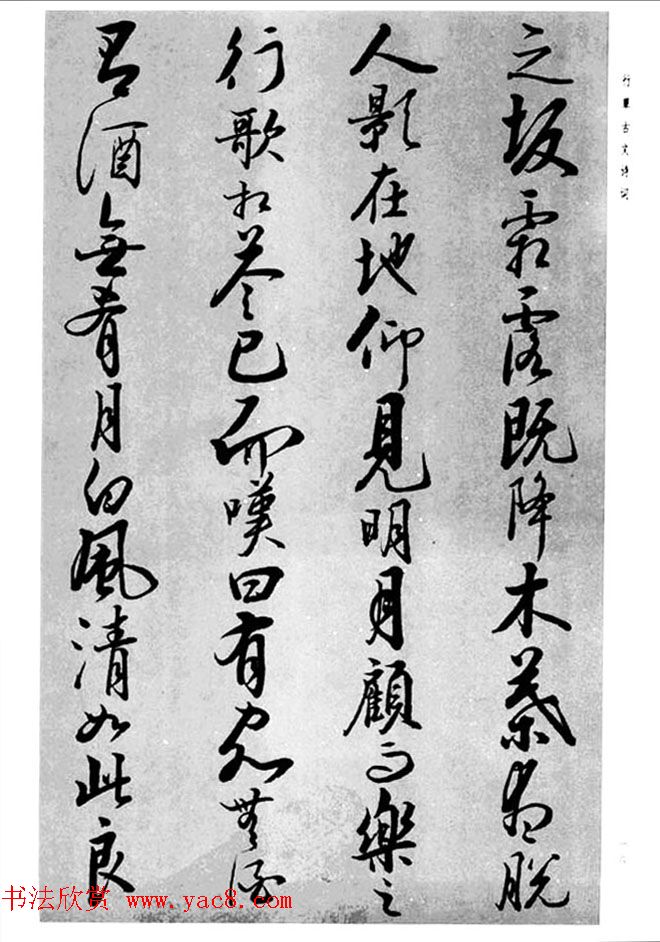 之坂霜露既降木葉盡脱
人影在地仰見明月顧而樂之
行歌相答已而嘆曰有客無酒
有酒無肴月白風清如此良
行草古文诗词
书法欣赏 www.yac8.com